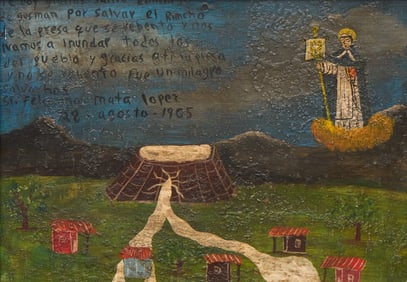 el gusman por salvar el Rancho
de la presa que se rebento y nos
ivamos a inundar todos los
del pueblo y gracias a ti la presa
y no se rebento fue un milagro
salvarnos
Sr. Feli mata lopez
28-agosto-1965